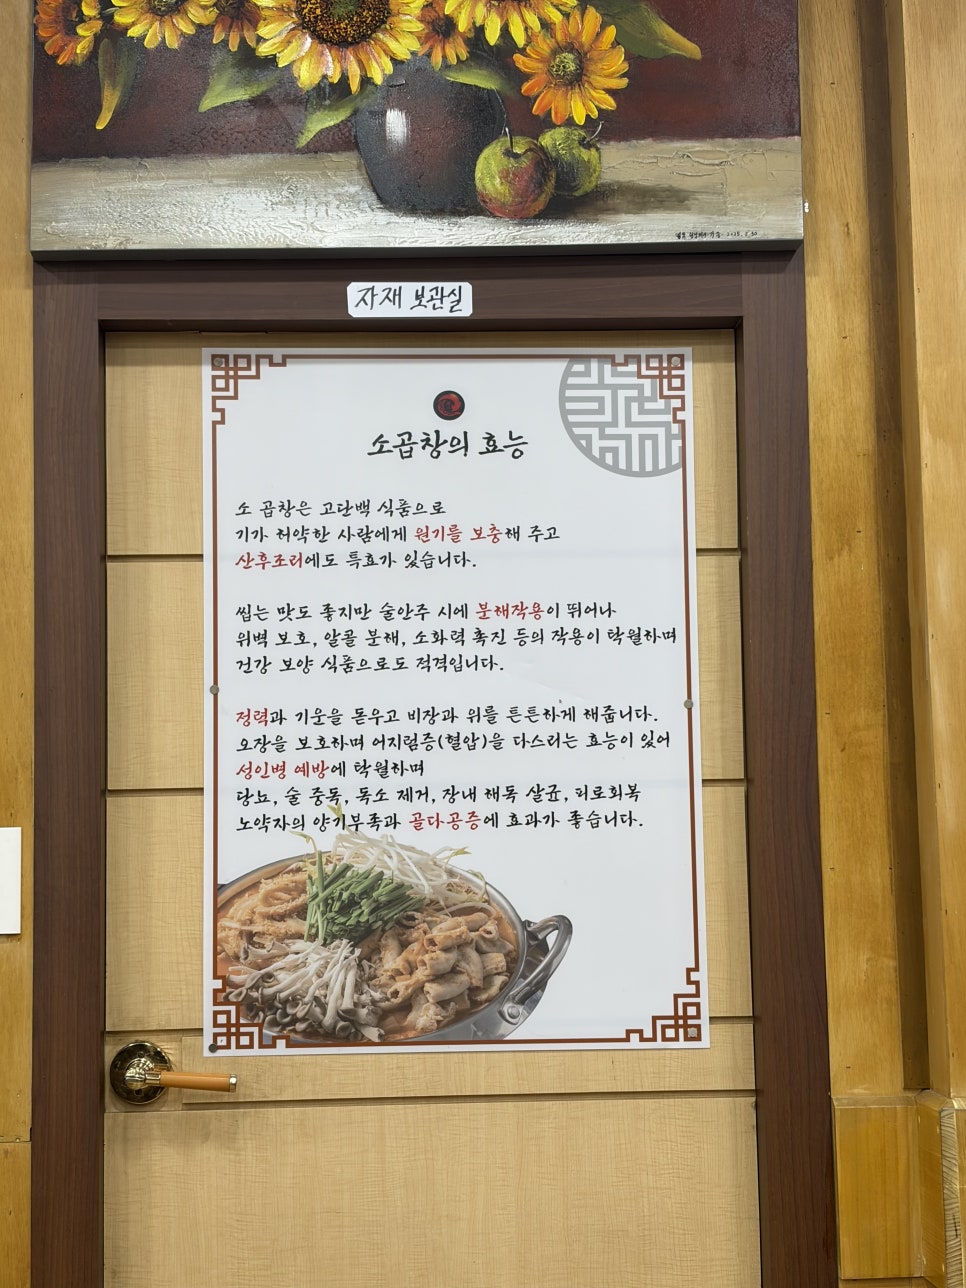 자재 보관실
소곱창의 효능
소 곱창은 고단백 식품으로
기가 허약한 사람에게 원기를 보충해 주고
산후조리에도 특효가 있습니다.
씹는 맛도 좋지만 술안주 시에 분해작용이 뛰어나
위벽 보호, 알콜 분해, 소화력 촉진 등의 작용이 탁월하며
건강 보양 식품으로도 적격입니다.
정력과 기운을 돋우고 비장과 위를 튼튼하게 해줍니다.
오장을 보호하며 어지럼증(혈압)을 다스리는 효능이 있어
성인병 예방에 탁월하며
당뇨, 술 중독, 독소 제거, 장내 해독 살균, 피로회복
노약자의 양기부족과 골다공증에 효과가 좋습니다.